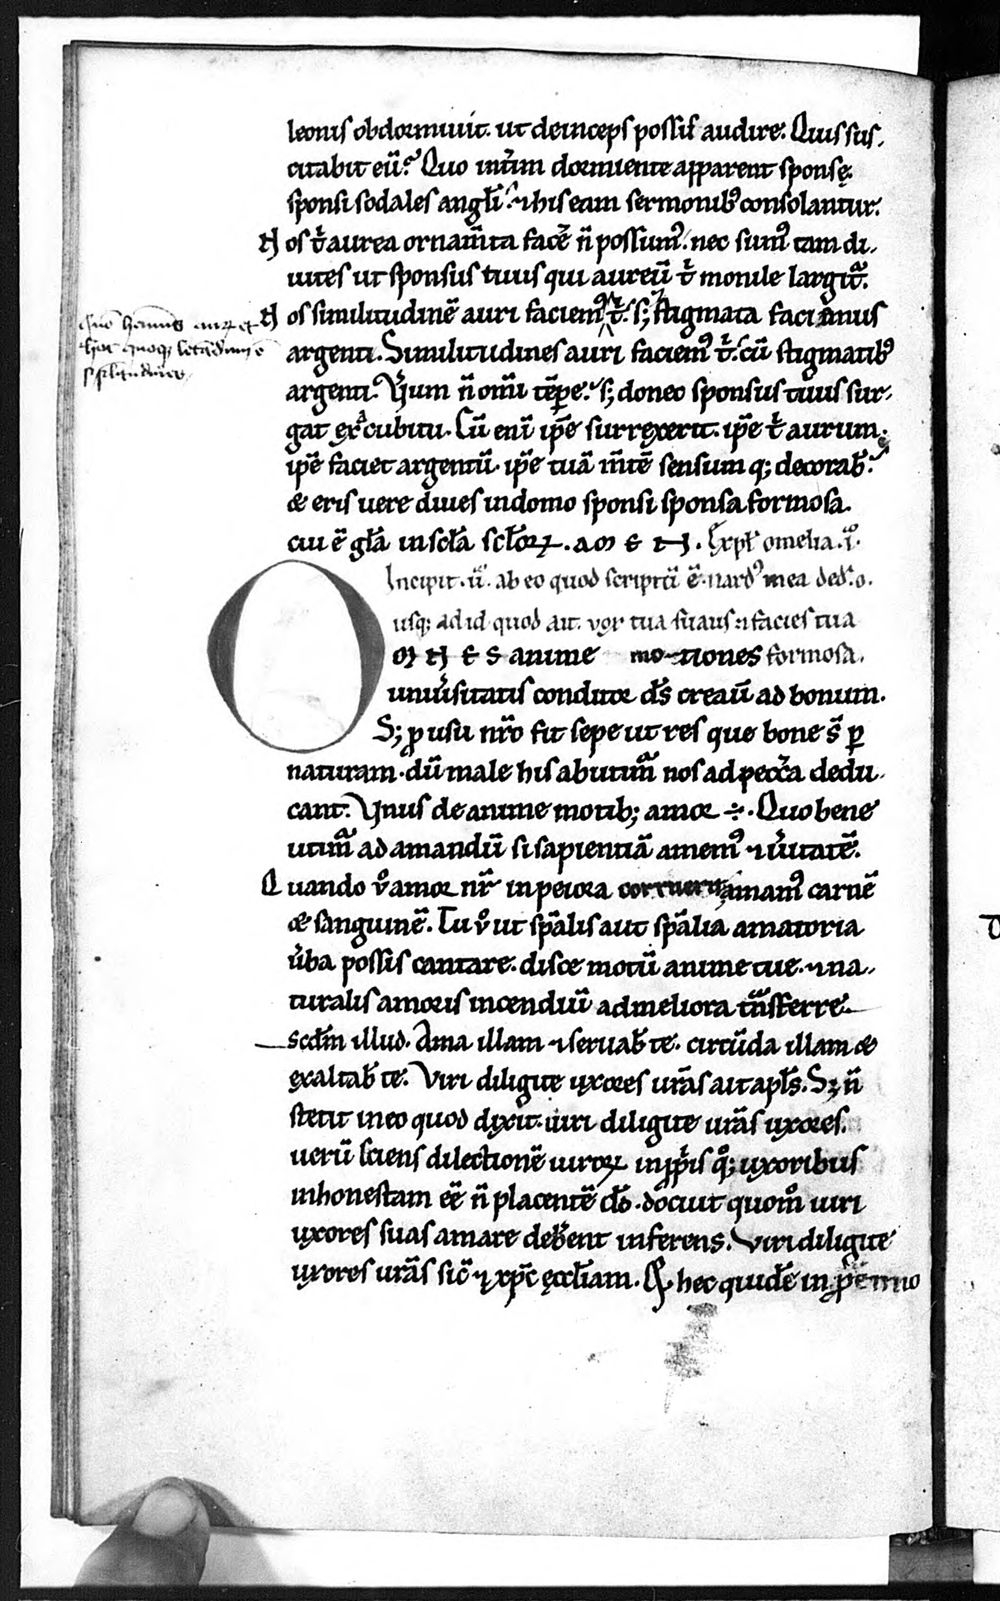 leonis obdormiuit. ut deinceps possis audire. Quis sus-
citabit eũ? Quo intĩm dormiente apparent sponsę
sponsi sodales angli. ⁊ his eam sermonib; consolantur.
Nos t̃ aurea ornam̃ta facẽ ñ possumꝰ. nec sumꝰ tam di-
uites ut sponsus tuus qui aureũ t̃ monile largit̃.
Nos similitudinẽ auri faciemꝰ t̃. s; stigmata faciemus
argenti. Similitudines auri faciemꝰ t̃. cũ stigmatibꝰ
argenti. Verum ñ om̃i tẽpe. s; donec sponsus tuus sur-
gat ex accubitu. Cũ eni ip̃e surrexerit. ip̃e t̃ aurum.
ip̃e faciet argentũ. ip̃e tuã m̃tẽ sensum q; decorab̃.
& eris uere diues in domo sponsi sponsa formosa.
cui ẽ gl̃a in scl̃a scl̃oꝝ. AMEN. Expl̃ omelia .i.
Incipit .ii. ab eo quod scriptũ ẽ. nardꝰ mea ded. o.
usq; ad id quod ait. uox tua suauis ⁊ facies tua
OMNES anime motiones formosa.
uniũsitatis conditor d̃s creauit ad bonum.
S; p usu nr̃o fit sepe ut res que bone s̃ p
naturam. dũ male his abutim̃ nos ad pecc̃a dedu-
cant. Vnus de anime motib; amor ÷. Quo bene
utim̃ ad amandũ si sapientiã amemꝰ ⁊ ũitatẽ.
Quando ṽ amor nr̃ in peiora corruerit amamꝰ carnẽ
& sanguinẽ. Tu ṽ ut sp̃alis aut sp̃alia amatoria
ũba possis cantare. disce motũ anime tue. ⁊ na-
turalis amoris incendiũ ad meliora trãsferre
scd̃m illud. Ama illam ⁊ seruab̃ te. circũda illam &
exaltab̃ te. Viri diligite uxores ur̃as ait apl̃s. S; ñ
stetit in eo quod dixit. uiri diligite ur̃as uxores.
uerũ sciens dilectionẽ uiroꝝ in pp̃is q; uxoribus
inhonestam eẽ ñ placentẽ d̃o. docuit quom̃ uiri
uxores suas amare deb̃ent inferens. Viri diligite
uxores ur̃as sic̃ ⁊ xp̃c ęccl̃iam. hec quidẽ in